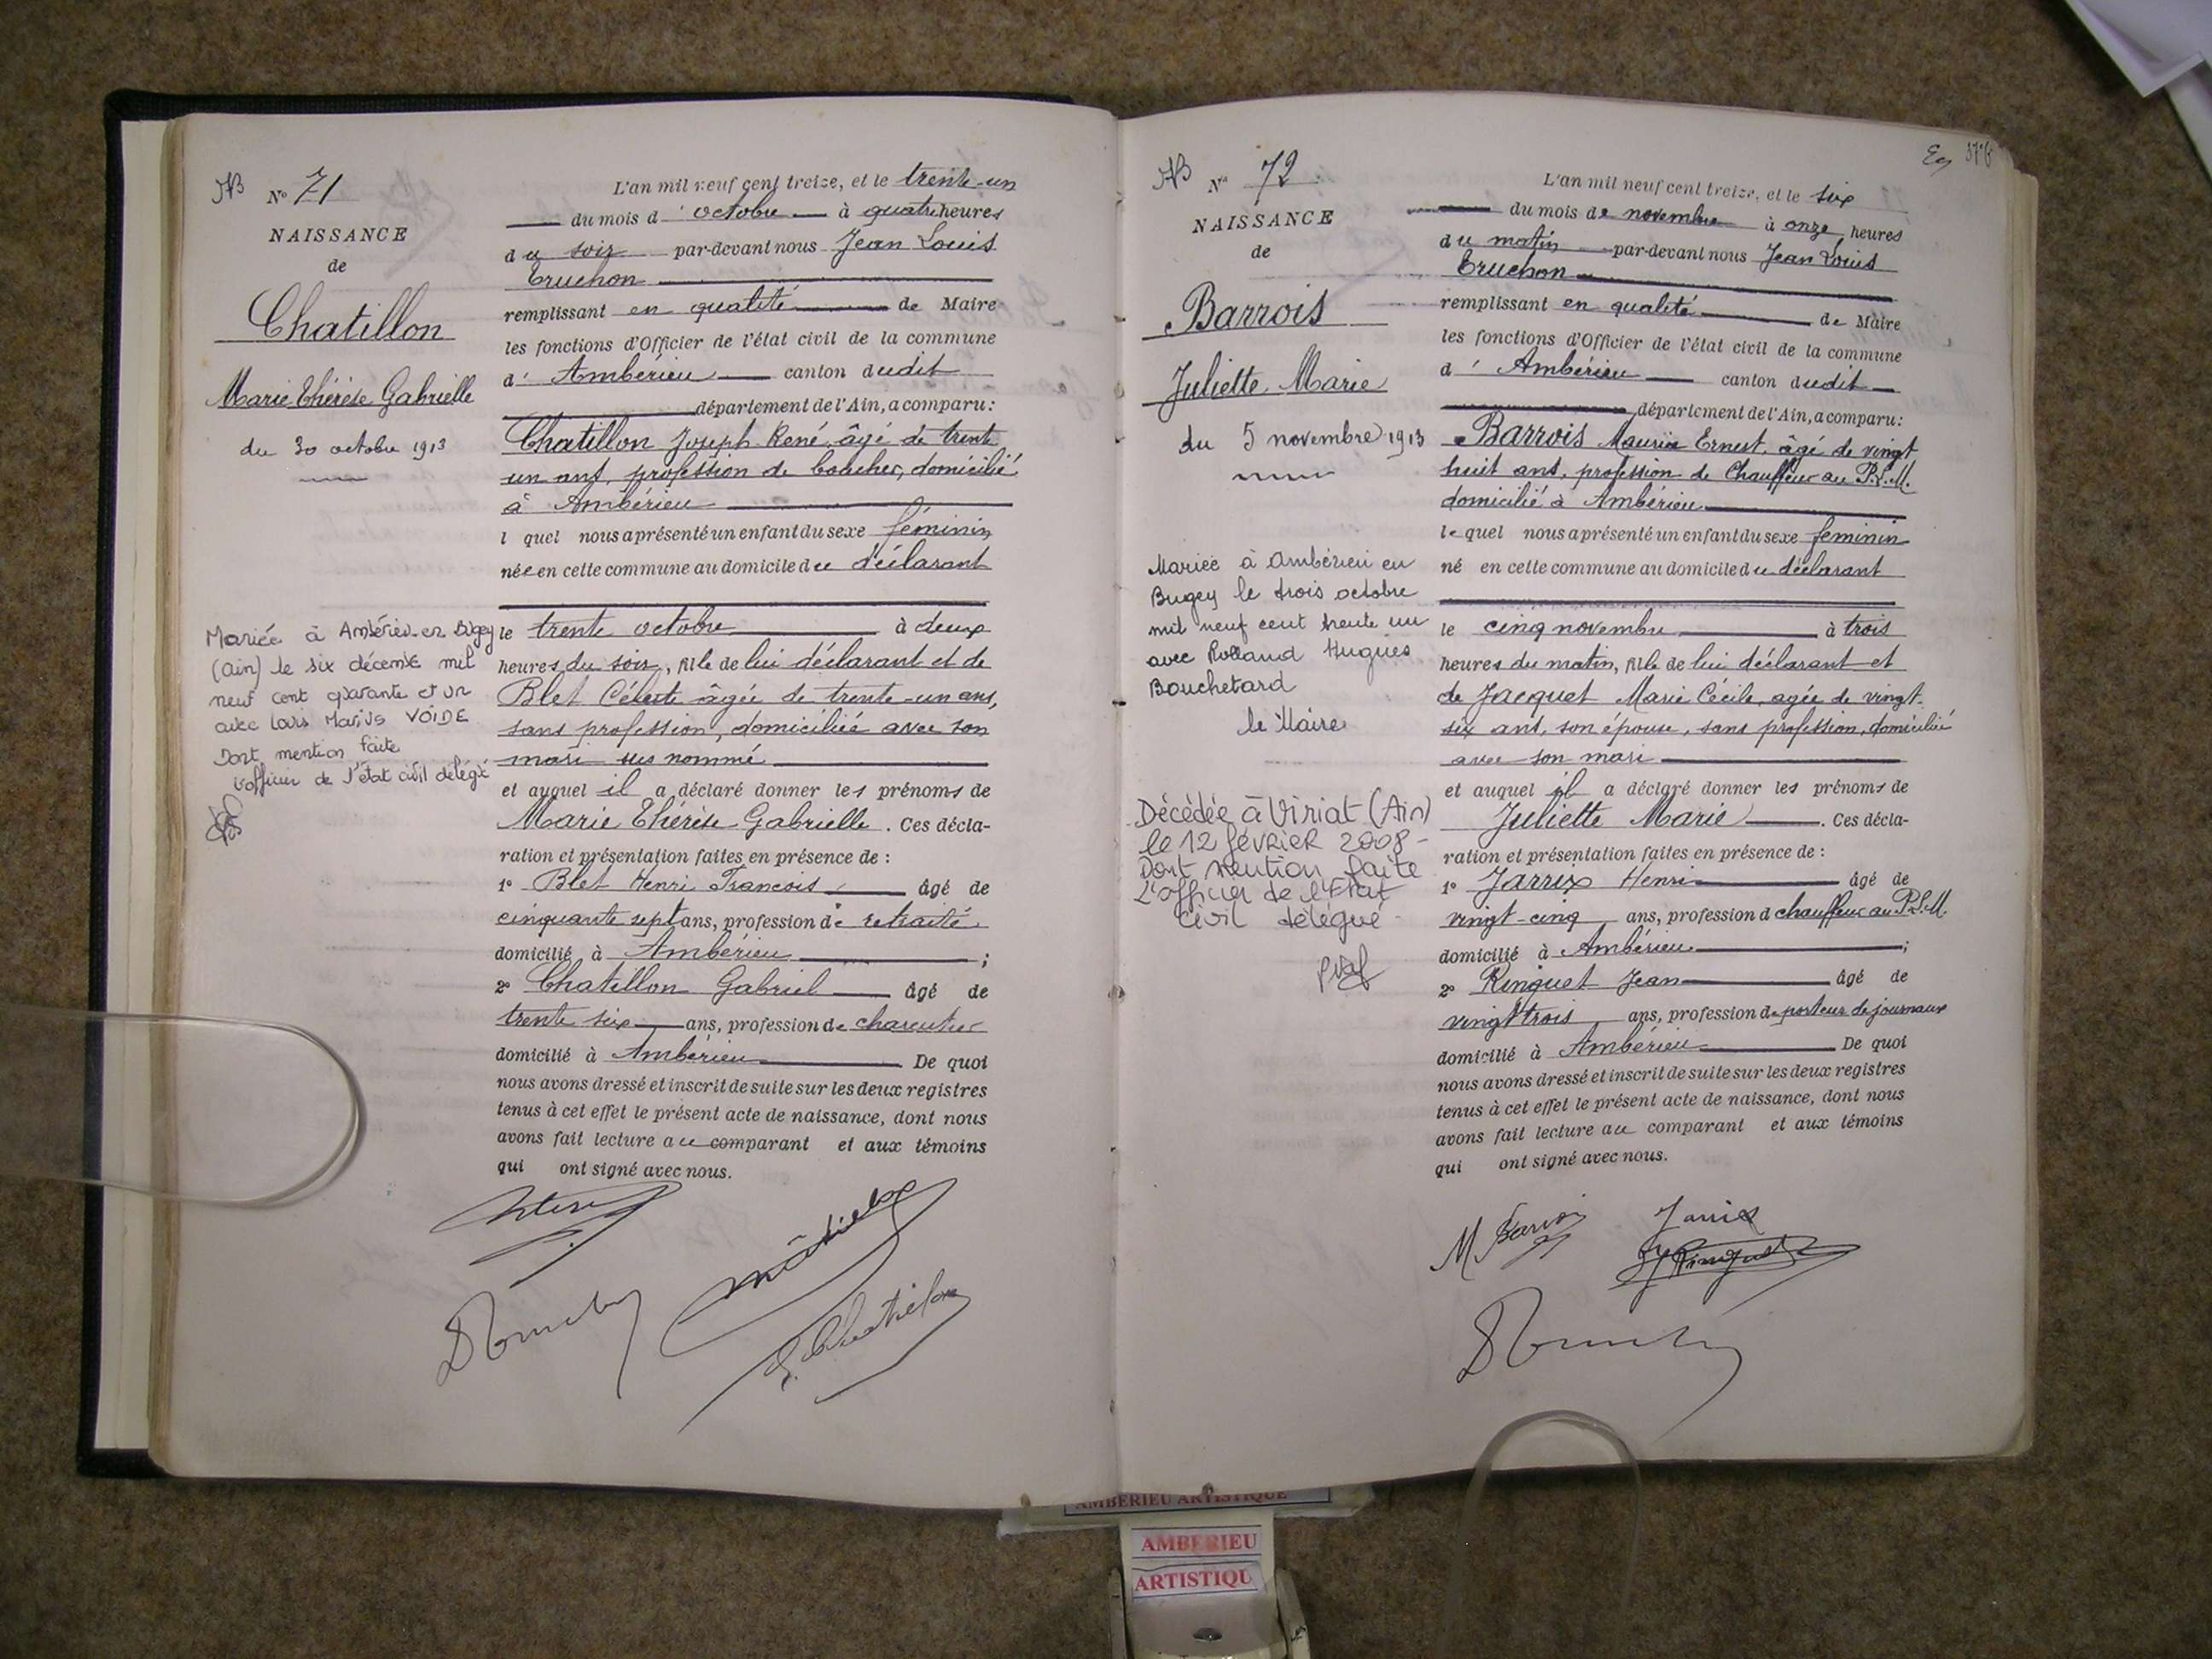 AB N° 71
NAISSANCE
de
Chatillon
Marie Thérèse Gabrielle
du 30 octobre 1913
Mariée à Ambérieu-en-Bugey
(Ain) le six décembre mil
neuf cent quarante et un
avec Louis Marius VOIDE
Dont mention faite
l'officier de l'état civil délégué
L'an mil neuf cent treize, et le trente-un
du mois d'octobre à quatre heures
du soir par-devant nous Jean Louis
Truchon
remplissant en qualité de Maire
les fonctions d'Officier de l'état civil de la commune
d'Ambérieu canton dudit
département de l'Ain, a comparu:
Chatillon Joseph René, âgé de trente
un ans, profession de boucher, domicilié
à Ambérieu
l quel nous a présenté un enfant du sexe féminin
née en cette commune au domicile du déclarant
le trente octobre à deux
heures du soir, fille de lui déclarant et de
Blet Céleste âgée de trente-un ans,
sans profession, domiciliée avec son
mari sus nommé
et auquel il a déclaré donner les prénoms de
Marie Thérèse Gabrielle. Ces décla-
ration et présentation faites en présence de :
1° Blet Henri François âgé de
cinquante sept ans, profession de retraité
domicilié à Ambérieu ;
2° Chatillon Gabriel âgé de
trente six ans, profession de charcutier
domicilié à Ambérieu De quoi
nous avons dressé et inscrit de suite sur les deux registres
tenus à cet effet le présent acte de naissance, dont nous
avons fait lecture au comparant et aux témoins
qui ont signé avec nous.
G. Chatillon
Eg 376
AB N° 72
NAISSANCE
de
Barrois
Juliette Marie
du 5 novembre 1913
Mariée à Ambérieu en
Bugey le trois octobre
mil neuf cent trente un
avec Rolland Hugues
Bouchetard
le Maire
Décédée à Viriat (Ain)
le 12 février 2008 -
Dont mention faite
L'officier de l'Etat
Civil délégué -
L'an mil neuf cent treize, et le six
du mois de novembre à onze heures
du matin par-devant nous Jean Louis
Truchon
remplissant en qualité de Maire
les fonctions d'Officier de l'état civil de la commune
d'Ambérieu canton dudit
département de l'Ain, a comparu:
Barrois Maurice Ernest, âgé de vingt
huit ans, profession de Chauffeur au P.L.M.
domicilié à Ambérieu
lequel nous a présenté un enfant du sexe féminin
né en cette commune au domicile du déclarant
le cinq novembre à trois
heures du matin, fille de lui déclarant et
de Jacquet Marie Cécile, agée de vingt-
six ans, son épouse, sans profession, domiciliée
avec son mari
et auquel il a déclaré donner les prénoms de
Juliette Marie. Ces décla-
ration et présentation faites en présence de :
1° Jarrix Henri âgé de
vingt-cinq ans, profession d chauffeur au P.L.M.
domicilié à Ambérieu ;
2° Ringuet Jean âgé de
vingt trois ans, profession de porteur de journaux
domicilié à Ambérieu De quoi
nous avons dressé et inscrit de suite sur les deux registres
tenus à cet effet le présent acte de naissance, dont nous
avons fait lecture au comparant et aux témoins
qui ont signé avec nous.
M Barrois Jarrix
Ringuet
AMBERIEU ARTISTIQUE
AMBERIEU
ARTISTIQU